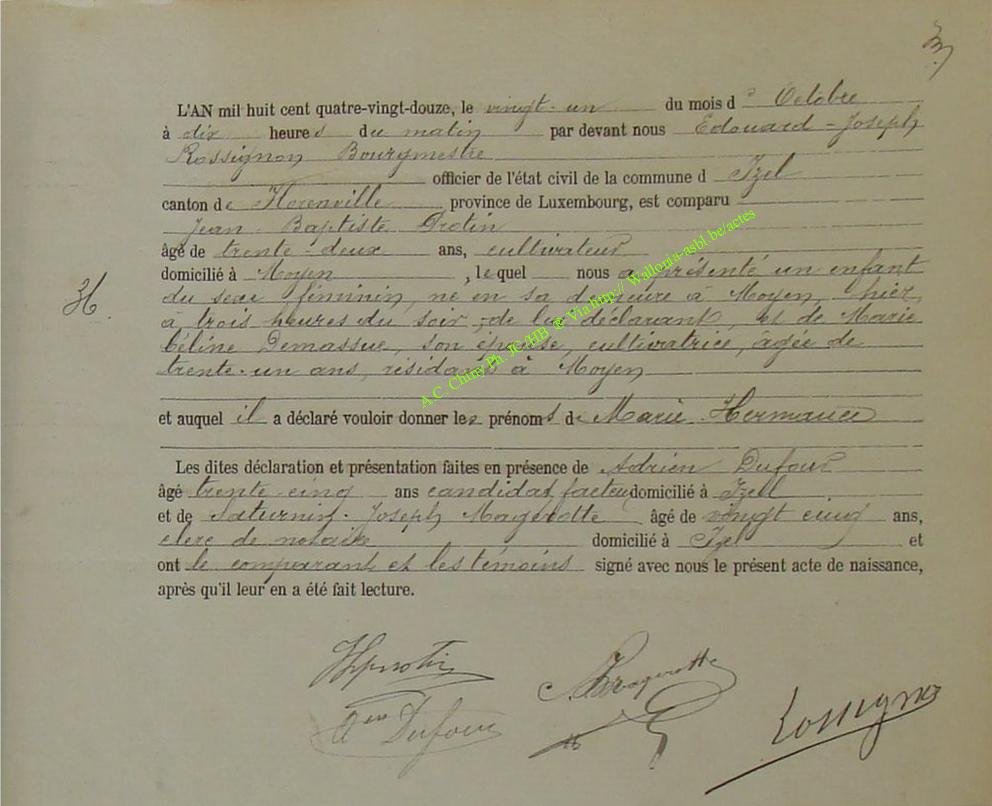 L'AN mil huit cent quatre-vingt-douze, le vingt-un du mois d'Octobre
à dix heures du matin par devant nous Edouard-Joseph
Rossignon Bourgmestre
officier de l'état civil de la commune d Izel
canton de Florenville province de Luxembourg, est comparu
Jean Baptiste Protin
âgé de trente-deux ans, cultivateur
domicilié à Moyen, lequel nous a présenté un enfant
du sexe féminin, né en sa demeure à Moyen, hier,
à trois heures du soir, de lui déclarant, et de Marie
Céline Demassue, son épouse, cultivatrice, âgée de
trente-un ans, résidant à Moyen
36.
et auquel il a déclaré vouloir donner les prénoms de Marie Hermance
Les dites déclaration et présentation faites en présence de Adrien Dufour
âgé trente-cinq ans candidat facteur domicilié à Izel
et de Saturnin-Joseph Magerotte, âgé de vingt cinq ans,
clerc de notaire domicilié à Izel et
ont le comparant et les témoins signé avec nous le présent acte de naissance,
après qu'il leur en a été fait lecture.
A.C. Chiny Ph. JC/HB & Via http:// Wallonia-asbl.be/actes
Magerotte
Dufour
Rossignon